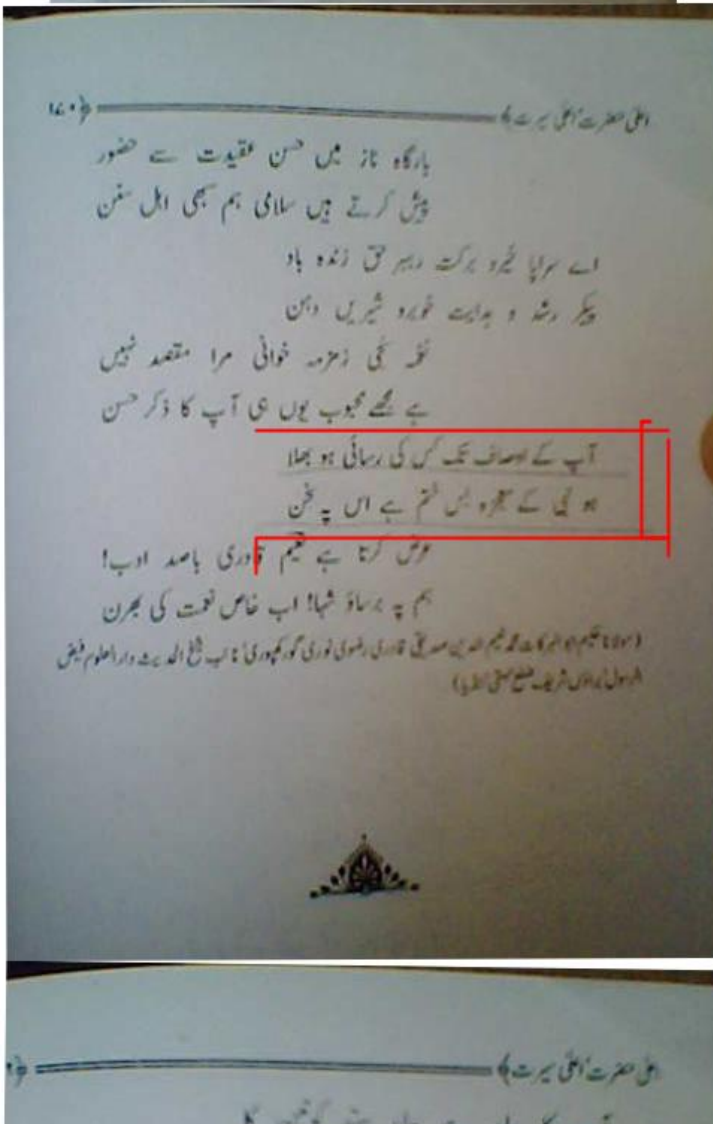 اعلیٰ حضرت اعلیٰ سیرت ﴾ ﴿ ۱۷۰
بارگاہ ناز میں حسن عقیدت سے حضور
پیش کرتے ہیں سلامی ہم سبھی اہل سنن
اے سراپا خیرو برکت رہبر حق زندہ باد
پیکر رشد و ہدایت خوبرو شیریں دہن
نغمہ سنجی زمزمہ خوانی مرا مقصد نہیں
ہے مجھے محبوب یوں ہی آپ کا ذکر حسن
آپ کے اوصاف تک کس کی رسائی ہو بھلا
ہو نبی کے معجزہ بس ختم ہے اس پہ سخن
عرض کرتا ہے نعیم قادری باصد ادب!
ہم پہ برساؤ شہا! اب خاص نعمت کی بھرن
(مولانا حکیم ابو البرکات محمد نعیم الدین صدیقی قادری رضوی نوری گورکھپوری' نائب شیخ الحدیث دارالعلوم فیض
الرسول براؤں شریف ضلع بستی انڈیا)
اعلیٰ حضرت اعلیٰ سیرت ﴾